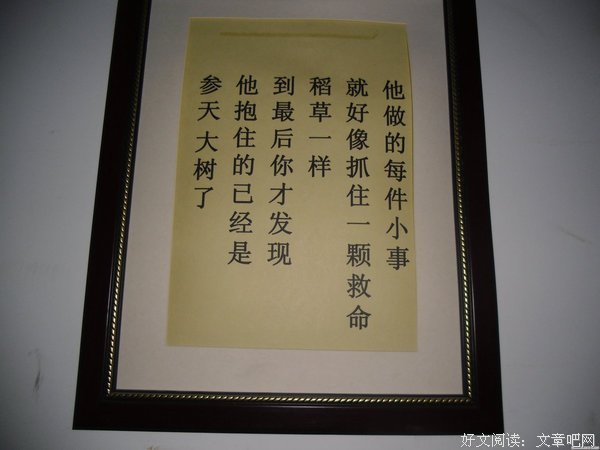 他做的每件小事
就好像抓住一颗救命
稻草一样
到最后你才发现
他抱住的已经是
参天大树了
好文阅读：文章吧网